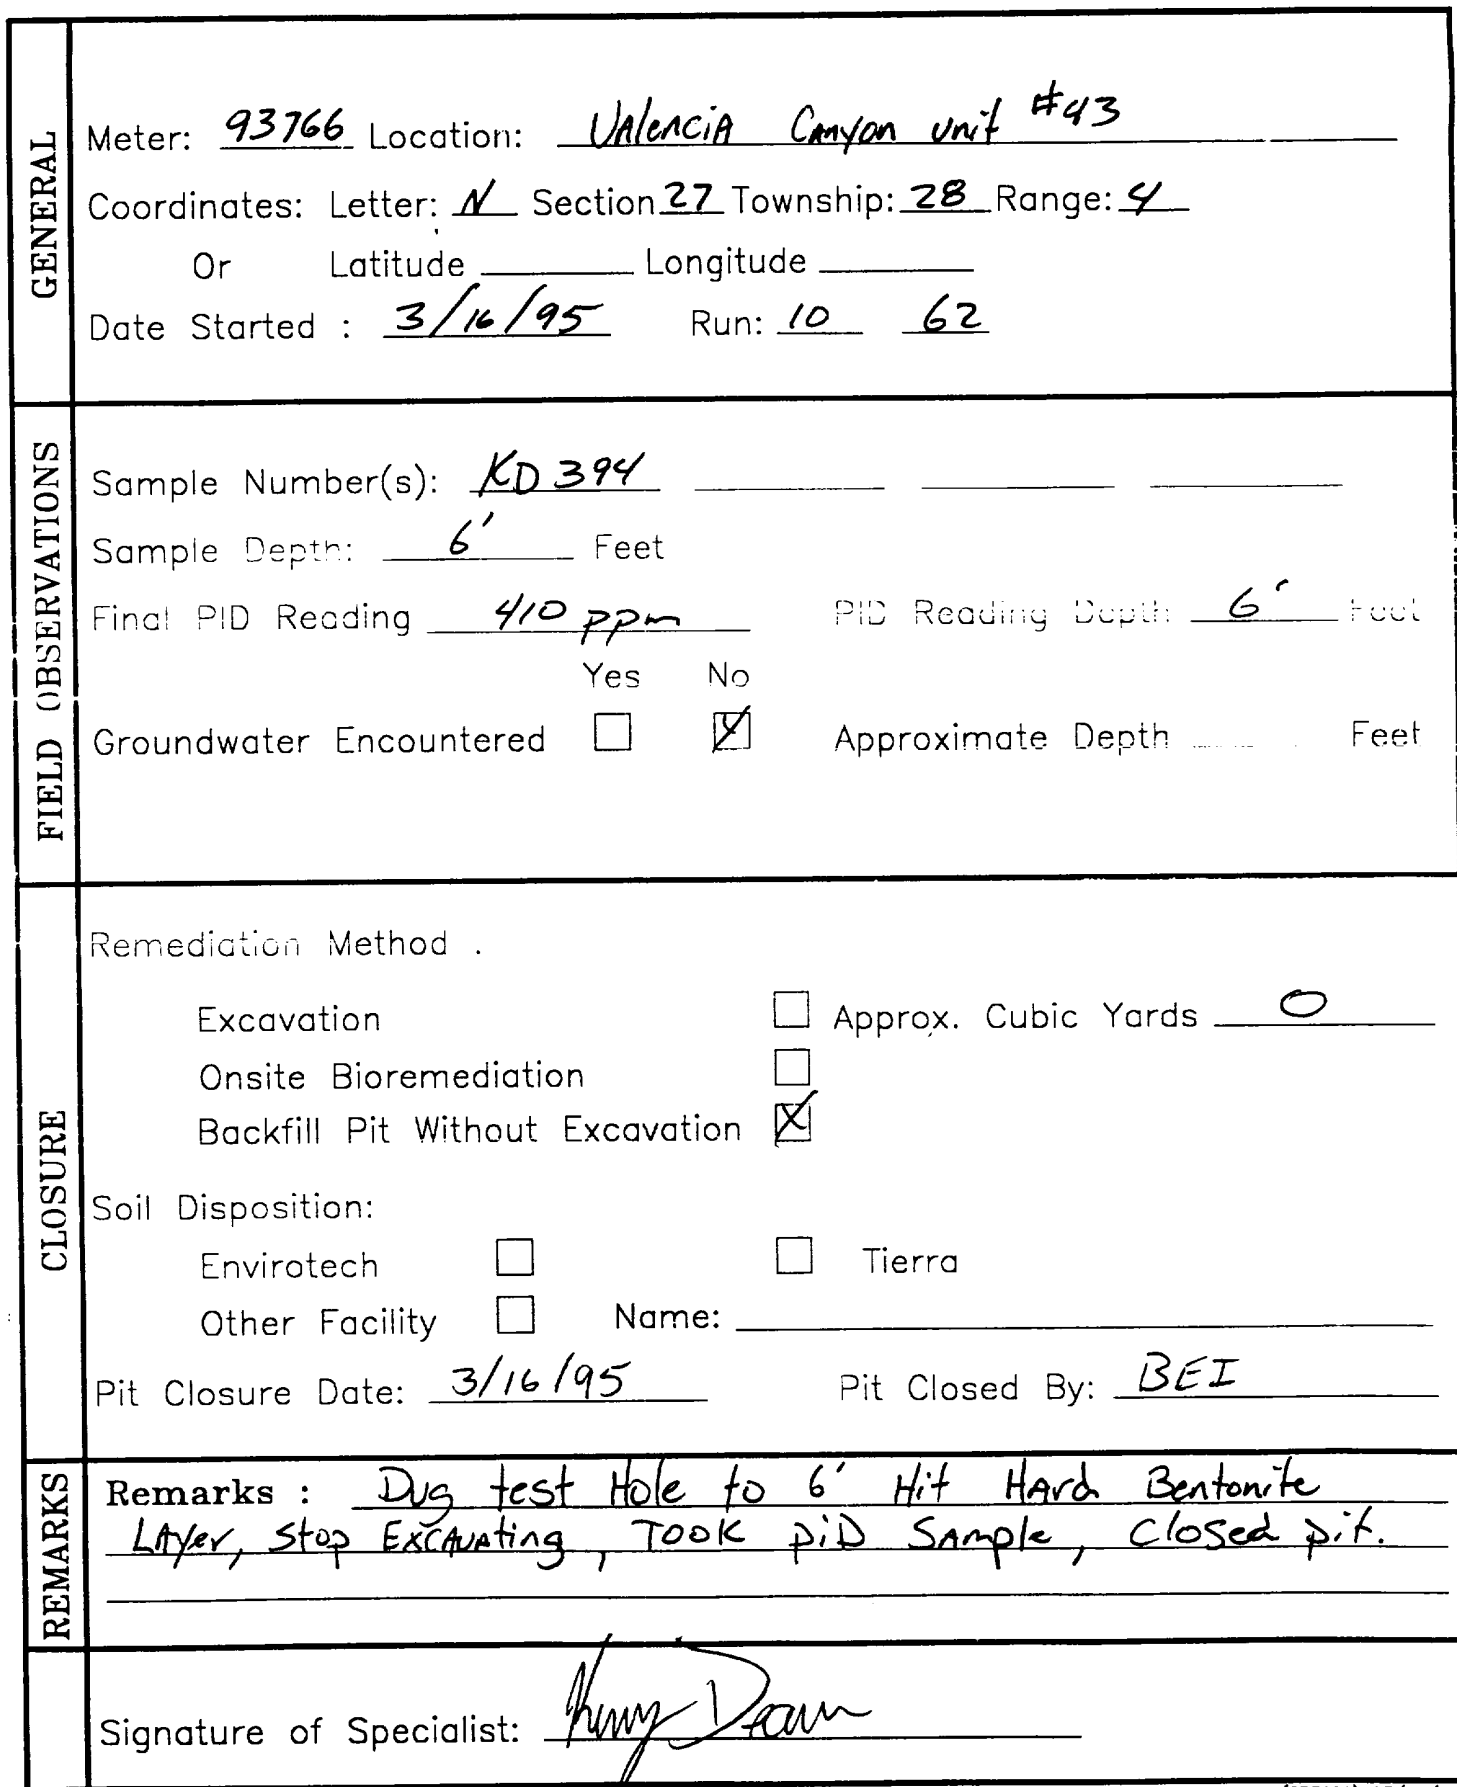 GENERAL
Meter: 93766 Location: Valencia Canyon unit #43
Coordinates: Letter: N Section 27 Township: 28 Range: 4
Or Latitude Longitude
Date Started : 3/16/95 Run: 10 62
FIELD OBSERVATIONS
Sample Number(s): KD394
Sample Depth: 6' Feet
Final PID Reading 410 ppm PID Reading Depth 6' Feet
Yes No
Groundwater Encountered Approximate Depth Feet
CLOSURE
Remediation Method .
Excavation Approx. Cubic Yards 0
Onsite Bioremediation
Backfill Pit Without Excavation X
Soil Disposition:
Envirotech Tierra
Other Facility Name:
Pit Closure Date: 3/16/95 Pit Closed By: BEI
REMARKS
Remarks : Dug test Hole to 6' Hit Hard Bentonite
Layer, Stop Excavating, Took PiD Sample, Closed pit.
Signature of Specialist: